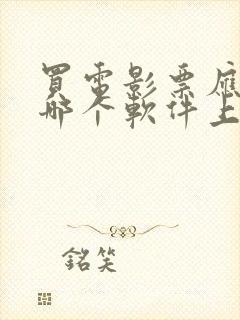 買電影票應
哪个軟件上
銘笑